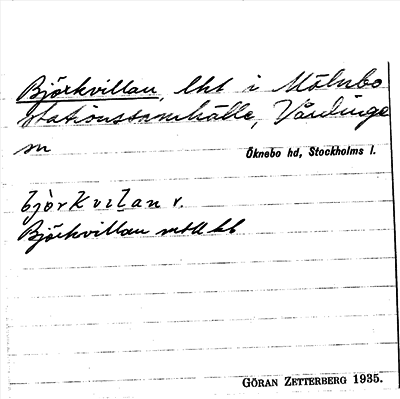 Björkvillan, lht i Mölnbo
stationssamhälle, Vårdinge
sn
Öknebo hd, Stockholms l.
bjòrkvilan v.
Björkvillan mtll kb
GÖRAN ZETTERBERG 1935.